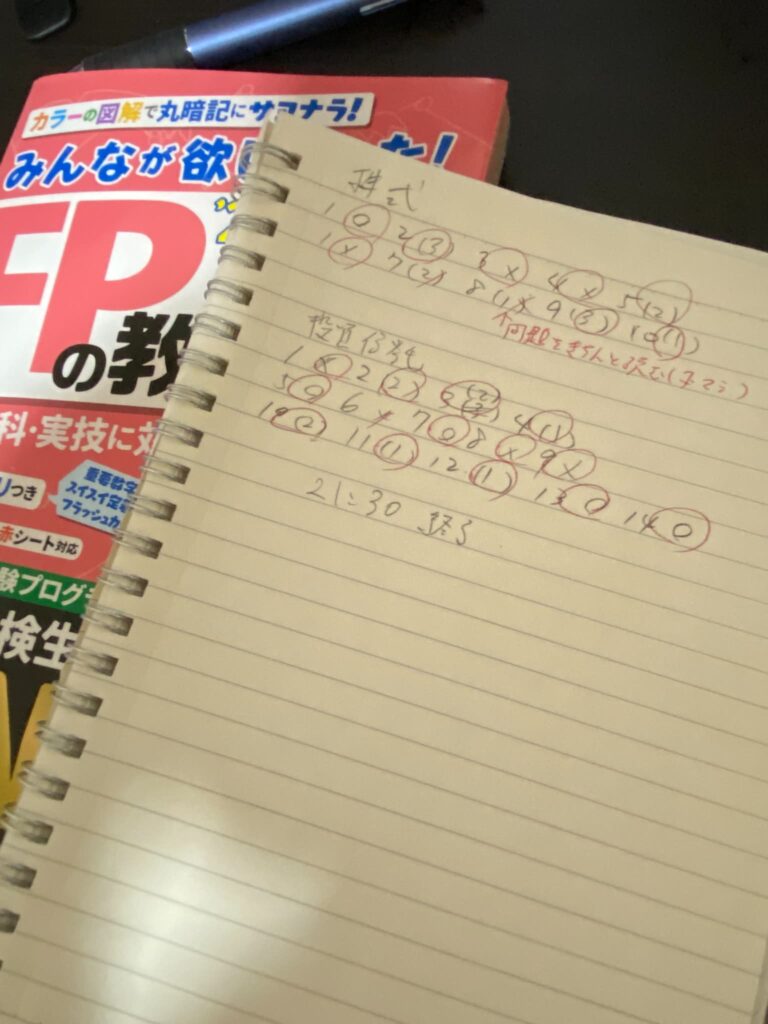 カラーの図解で丸暗記にサヨナラ!
みんなが欲
た!
FP
の教
科・実技に対
つき
重要数字
スイスイ定
フラッシュカ
赤シート対応
験プログ
検生
株式
1 0 2 (3) 3 × 4 × 5 (2)
1 × 7 (2) 8 (1)× 9 (3) 10 (1)
↑問題をきちんと読む
投資信託
1 × 2 (2) 3 (2) 4 (1)
5 0 6 × 7 0 8 × 9 ×
10 (2) 11 (1) 12 (1) 13 0 14 0
21:30 終了